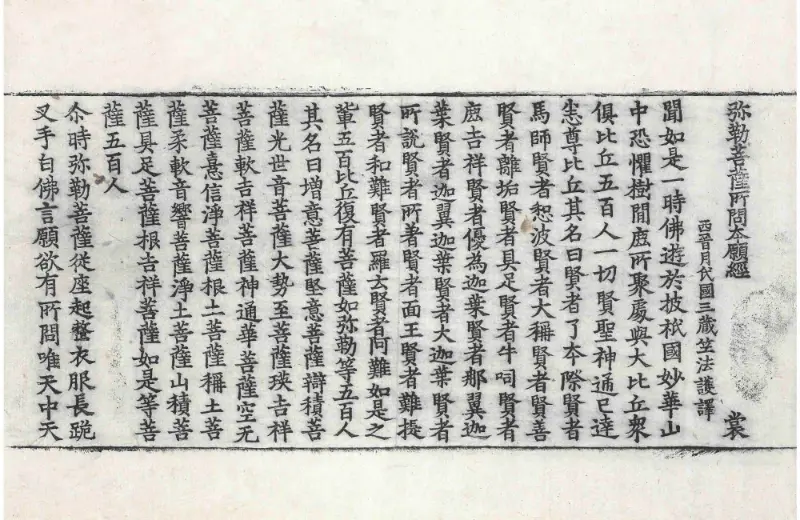 弥勒菩薩所問本願經 裳
西晉月氏國三蔵竺法護譯
聞如是一時佛遊於披祇國妙華山
中恐懼樹閒鹿所聚處與大比丘衆
俱比丘五百人一切賢聖神通已達
悉尊比丘其名曰賢者了本際賢者
馬師賢者惒波賢者大稱賢者賢善
賢者離垢賢者具足賢者牛呞賢者
鹿吉祥賢者優為迦葉賢者那翼迦
葉賢者迦翼迦葉賢者大迦葉賢者
所說賢者所著賢者面王賢者難提
賢者和難賢者羅云賢者阿難如是之
軰五百比丘復有菩薩如弥勒等五百人
其名曰增意菩薩堅意菩薩辯積菩
薩光世音菩薩大勢至菩薩瑛吉祥
菩薩軟吉祥菩薩神通華菩薩空无
菩薩憙信淨菩薩根土菩薩稱土菩
薩柔軟音響菩薩淨土菩薩山積菩
薩具足菩薩根吉祥菩薩如是等菩
薩五百人
尒時弥勒菩薩從座起整衣服長跪
叉手白佛言願欲有所問唯天中天